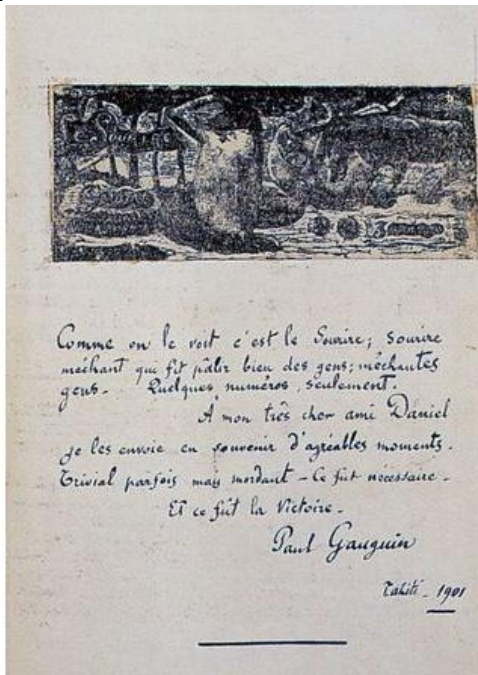 Comme on le voit c'est le Sourire; Sourire
méchant qui fit pâlir bien des gens; méchantes
gens - Quelques numéros, seulement.
A mon très cher ami Daniel
je les envoie en souvenir d'agréables moments -
Trivial parfois mais mordant - Ce fut nécessaire -
Et ce fût la Victoire -
Paul Gauguin
Tahiti - 1901